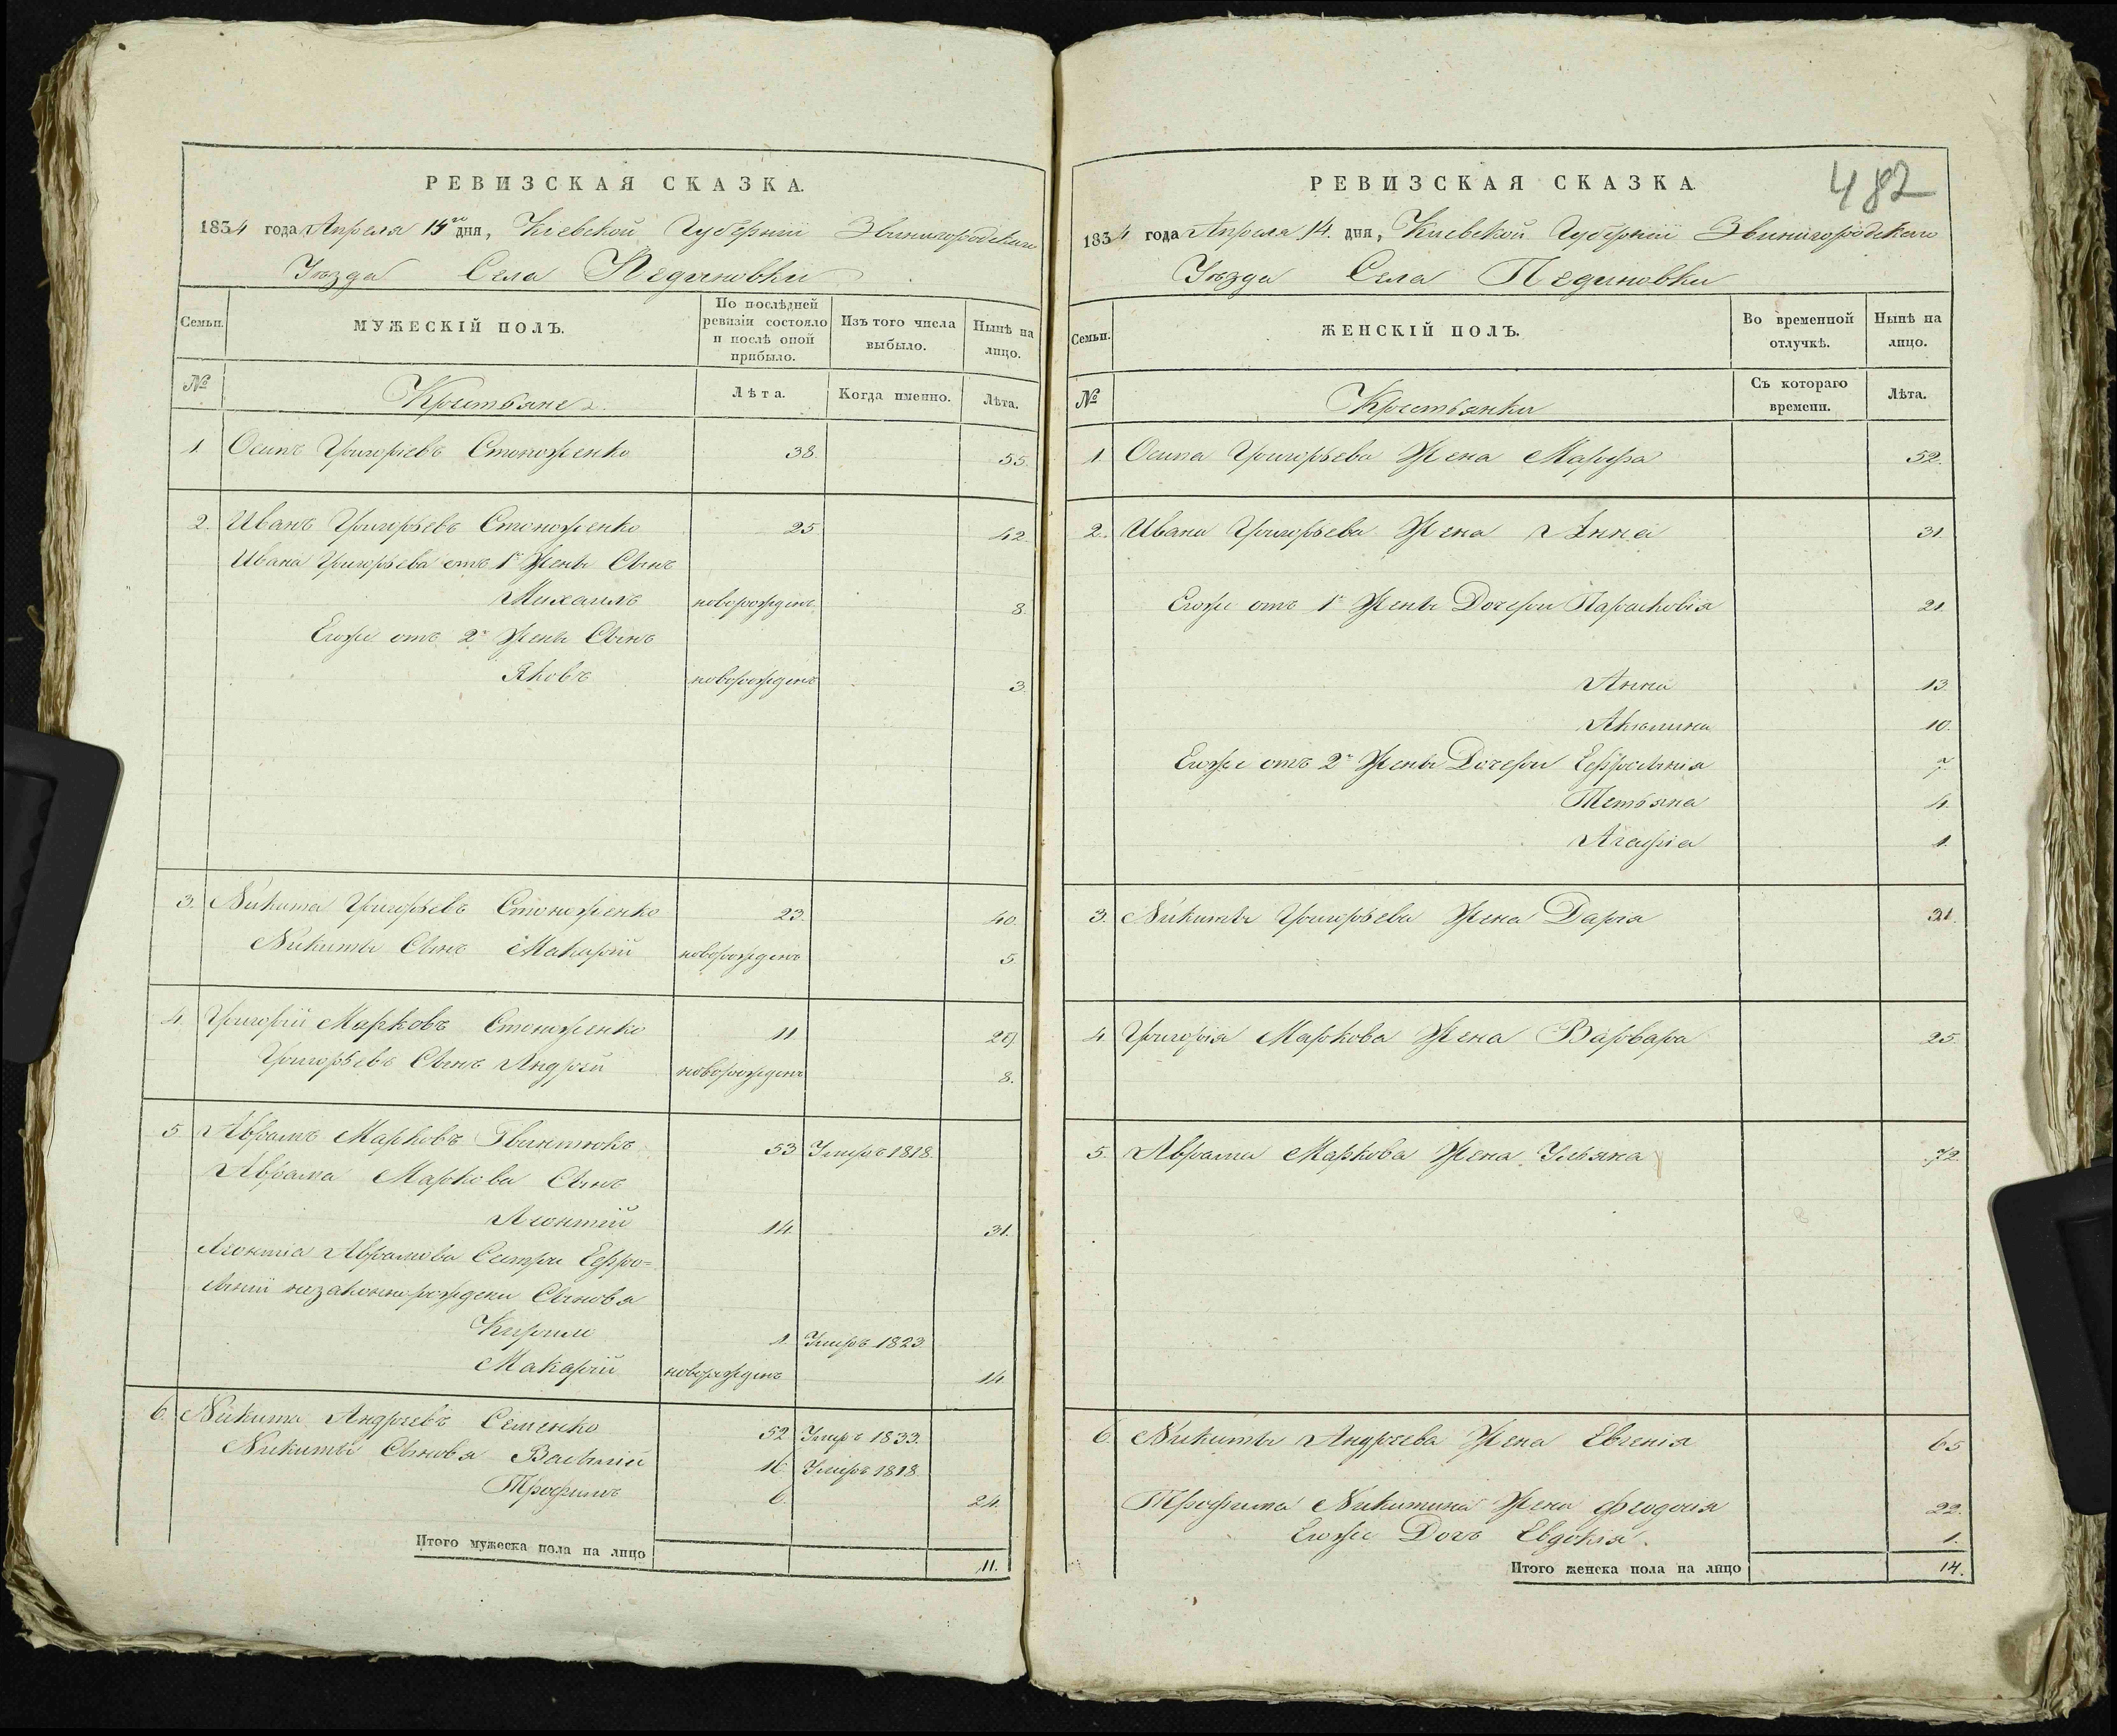 РЕВИЗСКАЯ СКАЗКА.
1834 года Апреля 14го дня, Кіевской Губерніи Звинигородскаго
Уѣзда Села Пединовки
Семьи.
МУЖЕСКІЙ ПОЛЪ.
По послѣдней ревизіи состояло и послѣ оной прибыло.
Изъ того числа выбыло.
Нынѣ на лицо.
№
Крестьяне
Лѣта.
Когда именно.
Лѣта.
1. Осипъ Григорьевъ Стоноженко 38. 55.
2. Иванъ Григорьевъ Стоноженко 25 42.
Ивана Григорьева отъ 1й Жены Сынъ
Михаилъ новорожденъ 8.
Егоже отъ 2й Жены Сынъ
Яковъ новорожденъ 3.
3. Никита Григорьевъ Стоноженко 23. 40.
Никиты Сынъ Макарій новорожденъ 5
4. Григорій Марковъ Стоноженко 11 28
Григорьевъ Сынъ Андрей новорожденъ 8.
5. Абрамъ Марковъ 53 Умеръ 1818.
Абрама Маркова Сынъ
Леонтій 14. 31.
Леонтіа Абрамова Сестры Ефро=
сыніи незаконнорождены Сыновя
Кирило 1 Умеръ 1823.
Макарій новорожденъ 14.
6. Никита Андреевъ Семенко 52 Умеръ 1833.
Никиты Сыновя Васылій 16 Умеръ 1818.
Трофимъ 6. 24.
Итого мужеска пола на лицо 11.
482
РЕВИЗСКАЯ СКАЗКА.
1834 года Апреля 14. дня, Кіевской Губерніи Звинигородскаго
Уѣзда Села Пединовки
Семьи.
ЖЕНСКІЙ ПОЛЪ.
Во временной отлучкѣ.
Нынѣ на лицо.
№
Крестьянки
Съ котораго времени.
Лѣта.
1. Осипа Григорьева Жена Марфа 52.
2. Ивана Григорьева Жена Анна 31.
Егоже отъ 1й Жены Дочери Парасковія 21.
Анна 13.
Акилина 10.
Егоже отъ 2й Жены Дочери Ефросынія 7.
Тетьяна 4.
Агафіа 1.
3. Никиты Григорьева Жена Дарія 31.
4. Григорія Маркова Жена Варвара 25
5. Абрама Маркова Жена Ульяна 72.
6. Никиты Андреева Жена Евгенія 65
Трофима Никитина Жена Феодосія 22.
Егоже Дочъ Евдокія. 1.
Итого женска пола на лицо 14.